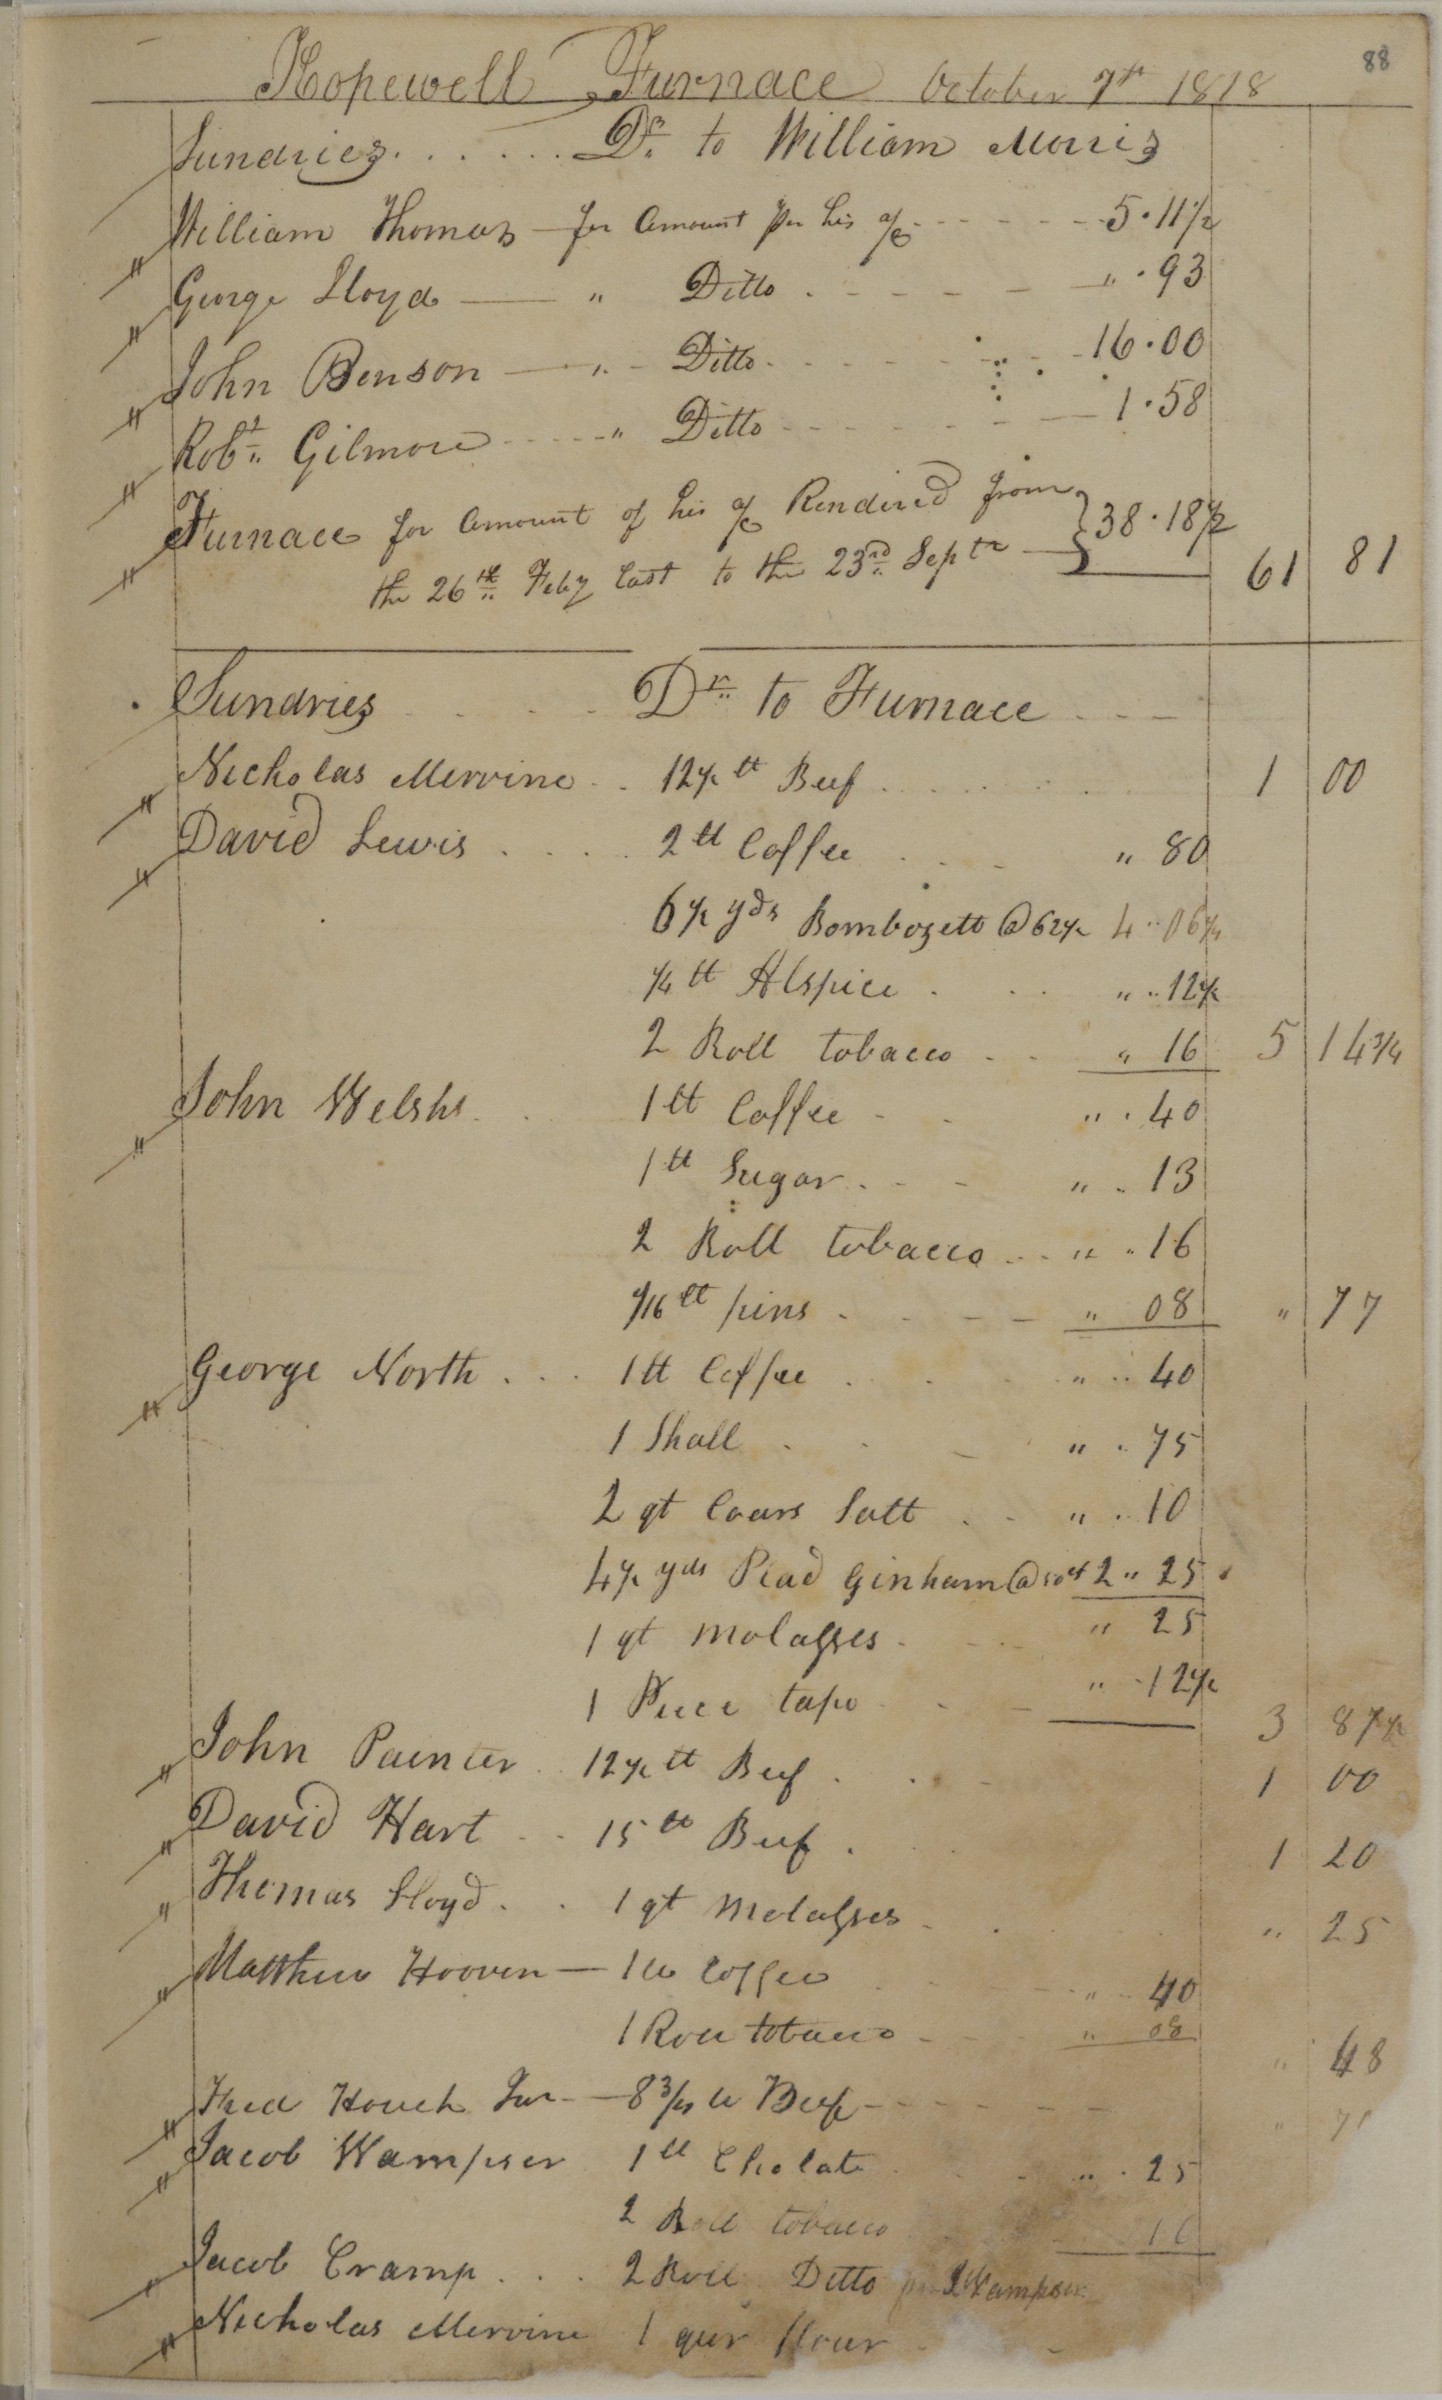 88
Hopewell Furnace October 7th 1818
Sundries . . . . . . . Dr. to William Morris
William Thomas — for Amount per his a/c - - - - - - 5.11½
George Lloyd — " Ditto . - - - - - " . 93
John Benson — " - Ditto . - - - - - 16.00
Robt. Gilmore - - - - " Ditto - - - - - - 1.58
Furnace for Amount of his a/c Rendired from } 38.18½
the 26th Feby last to the 23rd Septr — 61 81
Sundries . . . Dr. to Furnace - - -
Nicholas Mervine . . 12½ lt Beef . . . . . . 1 00
David Lewis . . . . 2 lt Coffee . . . " 80
6½ yds Bombozett @ 62½ 4 " 06¼
¼ lt Alspice . . . " .. 12½
2 Roll tobacco - - " 16 5 14¾
John Welsh . . 1 lt Coffee - - " . 40
1 lt Sugar . - - " . 13
2 Roll tobacco . . - " . 16
1/16 lt pins . - - - " 08 " 77
George North . . . 1 lt Coffee . . . " .. 40
1 Shall . . - " . 75
2 qt Coars Salt . . " . 10
4½ yds Plad Ginham @ 50 ct 2 " 25
1 qt molasses . - - " 25
1 Piece tape - - - " . 12½ 3 87½
John Painter . . 12½ lt Beef . . . - 1 00
David Hart . . . 15 lt Beef . . 1 20
Thomas Lloyd . . . 1 qt Molasses - . " 25
Matthew Hooven — 1 lb Coffee " .. 40
1 Roll tobacco - - " 08 " 48
Fred Houck Jur - — 8¾ lb Beef - - - - - " 71
Jacob Wampser 1 lt Cholate . . " . 25
2 Roll tobacco 16
Jacob Cramp . . . 2 Roll Ditto J Wampser
Nicholas Mervine 1 qur flour - -